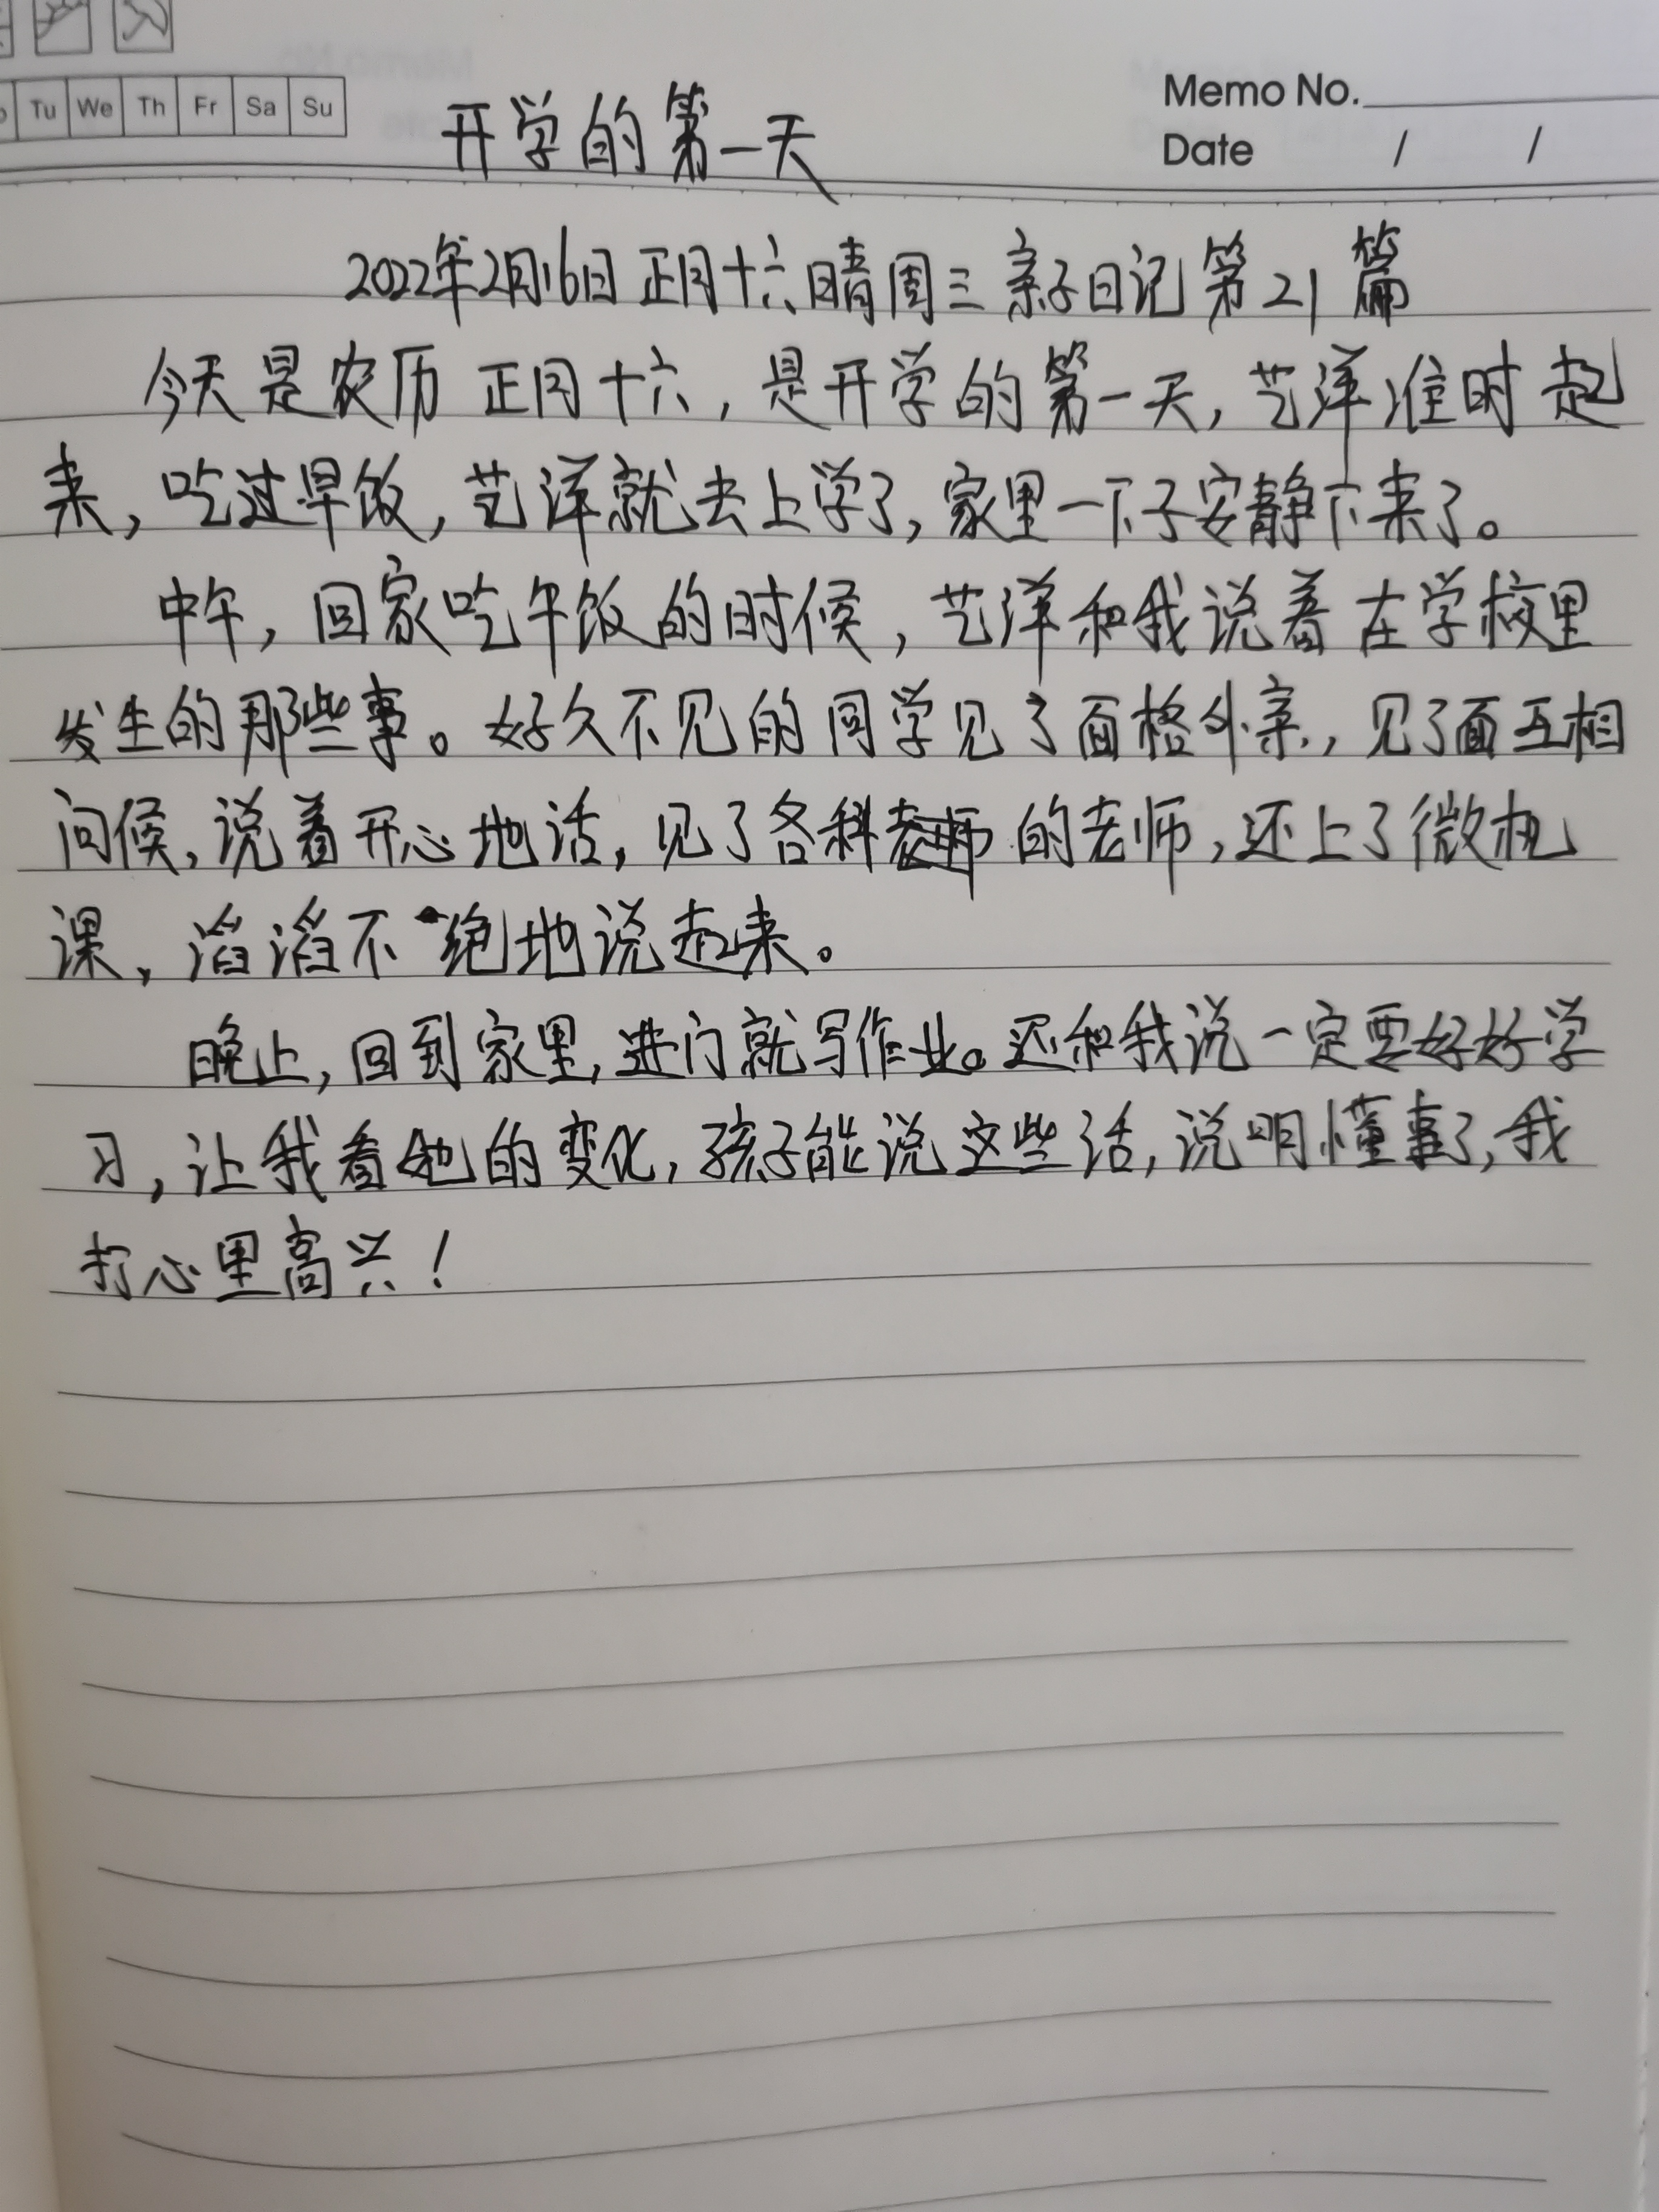 Tu We Th Fr Sa Su
Memo No.
Date / /
开学的第一天
2022年2月16日 正月十六 晴 周三 亲子日记 第21篇
今天是农历 正月十六，是开学的第一天，艺洋准时起
来，吃过早饭，艺洋就去上学了，家里一下子安静下来了。
中午，回家吃午饭的时候，艺洋和我说着在学校里
发生的那些事。好久不见的同学见了面格外亲，见了面互相
问候，说着开心地话，见了各科的老师，还上了微机
课，滔滔不绝地说起来。
晚上，回到家里，进门就写作业。还和我说一定要好好学
习，让我看她的变化，孩子能说这些话，说明懂事了，我
打心里高兴！